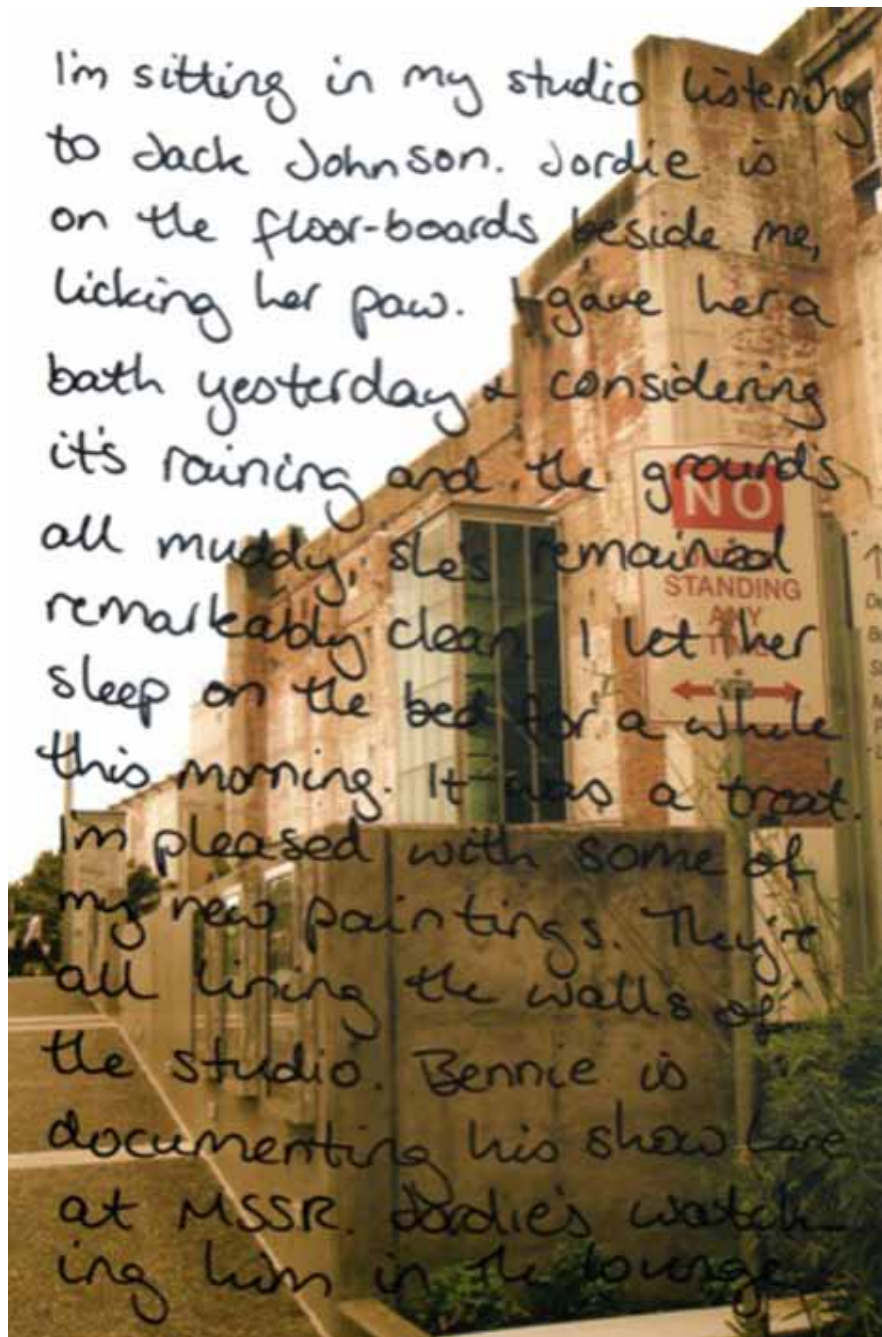 I'm sitting in my studio listening
to Jack Johnson. Jordie is
on the floor-boards beside me,
licking her paw. I gave her a
bath yesterday & considering
it's raining and the ground's
all muddy, she's remained
remarkably clean. I let her
sleep on the bed for a while
this morning. It was a treat.
I'm pleased with some of
my new paintings. They're
all lining the walls of
the studio. Bennie is
documenting his show here
at MSSR. Jordie's watch-
ing him in the lounge
NO
STANDING
ANY
TIME